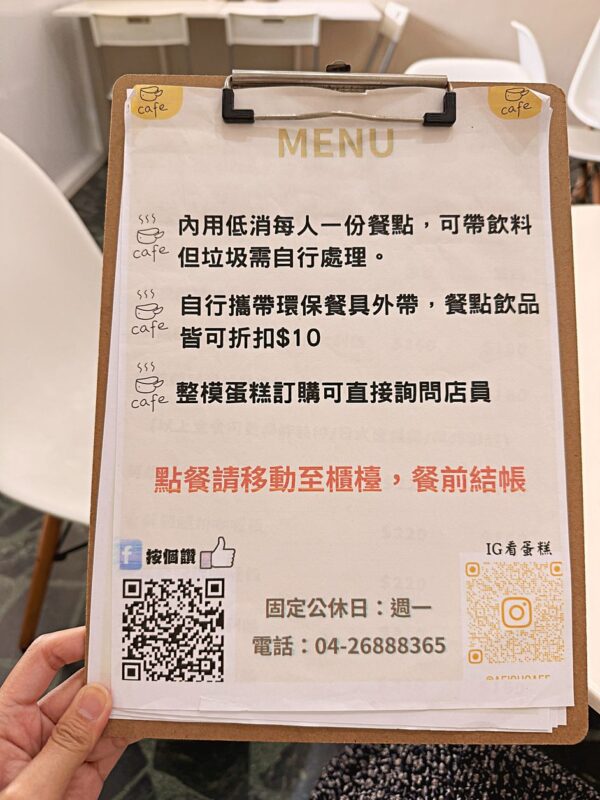 cafe
cafe
MENU
cafe
內用低消每人一份餐點，可帶飲料
但垃圾需自行處理。
cafe
自行攜帶環保餐具外帶，餐點飲品
皆可折扣$10
cafe
整模蛋糕訂購可直接詢問店員
點餐請移動至櫃檯，餐前結帳
f 按個讚
IG看蛋糕
固定公休日：週一
電話：04-26888365